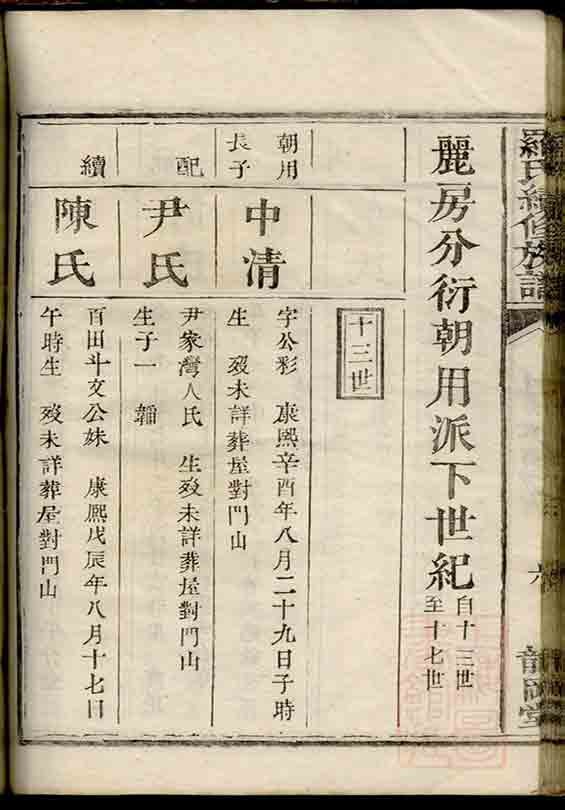 羅氏續修族譜
六
麗房分衍朝用派下世紀
自十三世
至十七世
十三世
朝用
長子
中清
字公彩 康熙辛酉年八月二十九日子時
生 歿未詳葬屋對門山
配
尹氏
尹家灣人氏 生歿未詳葬屋對門山
生子一
續
陳氏
百田斗文公妹 康熙戊辰年八月十七日
午時生 歿未詳葬屋對門山